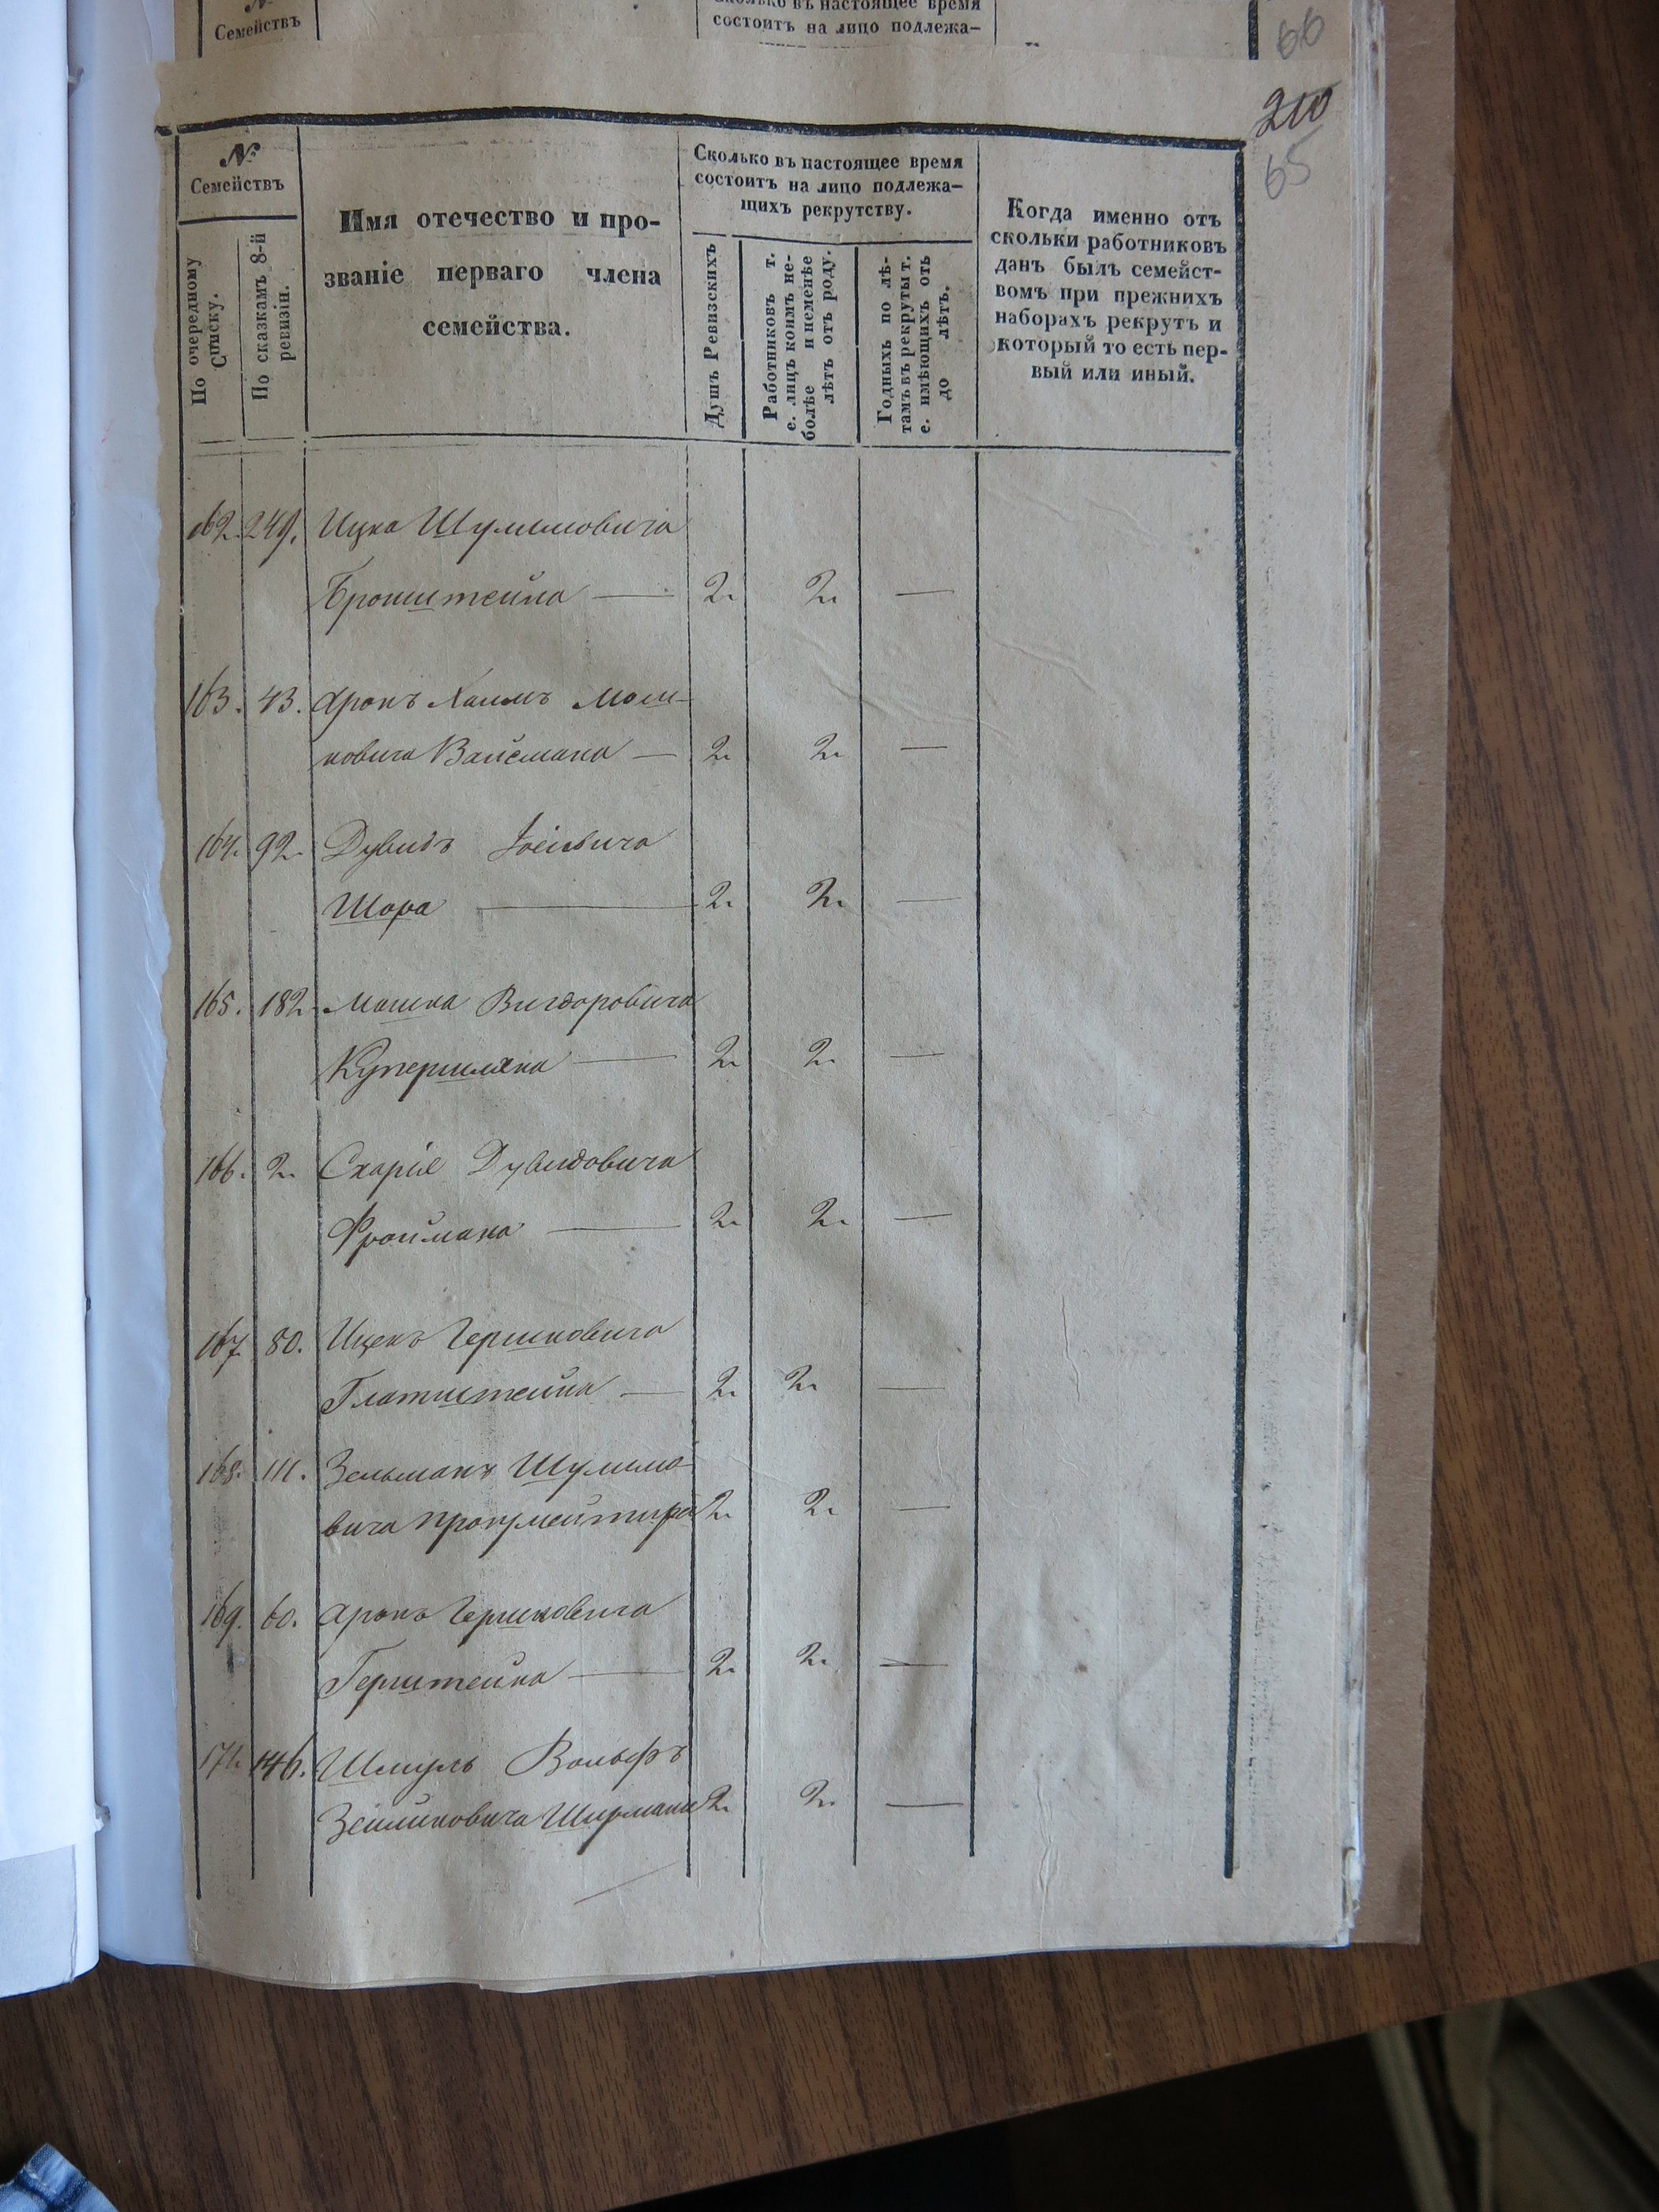 №
Семействъ
Сколько въ настоящее время
состоитъ на лицо подлежа-
66
210
65
№
Семействъ
По очередному
Списку.
По сказкамъ 8-й
ревизіи.
Имя отечество и про-
званіе перваго члена
семейства.
Сколько въ настоящее время
состоитъ на лицо подлежа-
щихъ рекрутству.
Душъ Ревизскихъ
Работниковъ т.
е. лицъ коимъ не-
болѣе и неменѣе
лѣтъ отъ роду.
Годныхъ по лѣ-
тамъ въ рекруты т.
е. имѣющихъ отъ
до лѣтъ.
Когда именно отъ
скольки работниковъ
данъ былъ семейст-
вомъ при прежнихъ
наборахъ рекрутъ и
который то есть пер-
вый или иный.
162. 249. Ицка Шулимовича
Бронштейна — 2. 2. —
163. 43. Аронъ Хаимъ Мош-
ковича Вайсмана — 2. 2. —
164. 92. Дувидъ
Шора — 2. 2. —
165. 182. Мошка Вигдоровича
2. 2. —
166. 2. Скарія Дувидовича
Фроймана — 2. 2. —
167. 80. Ицекъ Гершковича
Глатштейна — 2. 2. —
168. 111. Зельманъ Шулимо-
вича 2. 2. —
169. 60. Аронъ Гершковича
Герштейна — 2. 2. —
171. 146. Шмуль Вольфъ
Зейликовича Ширмана 2. 2. —